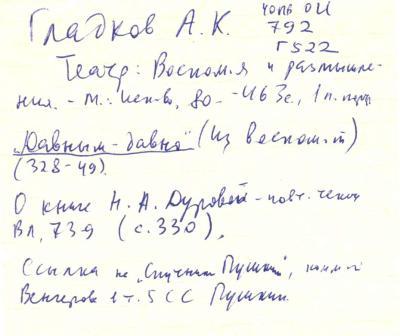 Гладков А. К.
792
Г522
Театр: Воспом.я и размышле-
ния. - М.: Иск-во, 80. - 463с., 1 л. портр
„Давным-давно" (Из воспом-й)
(328-49).
О книге Н. А. Дуровой - повт.
Вл, 739 (с. 330),
Ссылка на „Спутник Пушкин",
Венгеров в т. 5 СС Пушкин.